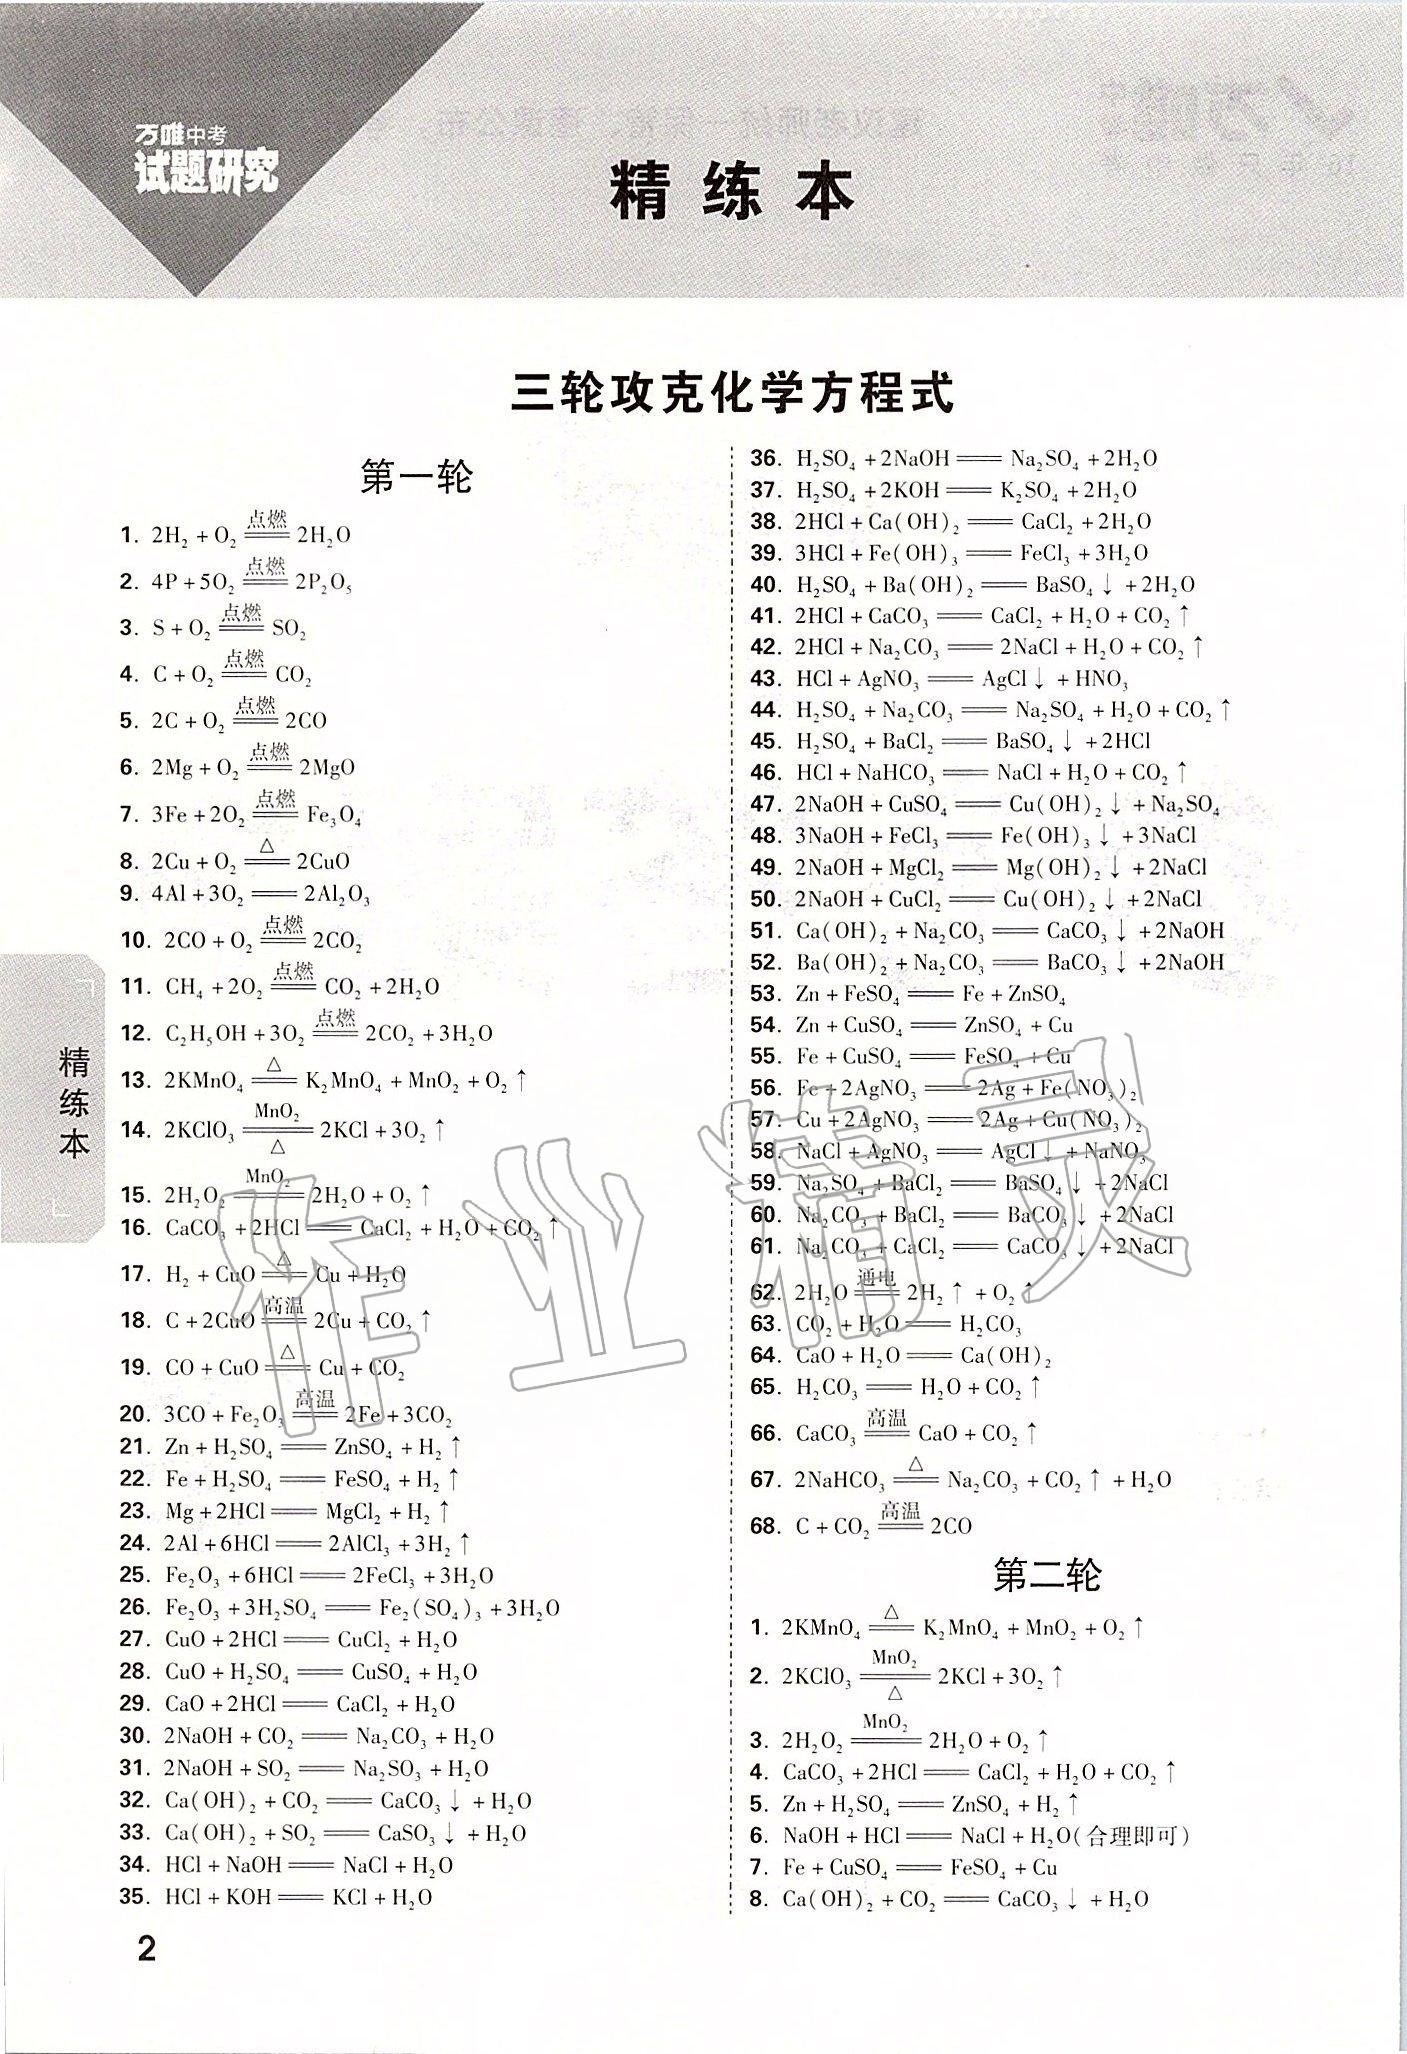 万唯中考
试题研究
精练本
三轮攻克化学方程式
第一轮
1. 2H₂+O₂ =点燃= 2H₂O
2. 4P+5O₂ =点燃= 2P₂O₅
3. S+O₂ =点燃= SO₂
4. C+O₂ =点燃= CO₂
5. 2C+O₂ =点燃= 2CO
6. 2Mg+O₂ =点燃= 2MgO
7. 3Fe+2O₂ =点燃= Fe₃O₄
8. 2Cu+O₂ =△= 2CuO
9. 4Al+3O₂ == 2Al₂O₃
10. 2CO+O₂ =点燃= 2CO₂
11. CH₄+2O₂ =点燃= CO₂+2H₂O
12. C₂H₅OH+3O₂ =点燃= 2CO₂+3H₂O
13. 2KMnO₄ =△= K₂MnO₄+MnO₂+O₂↑
14. 2KClO₃ =MnO₂/△= 2KCl+3O₂↑
15. 2H₂O₂ =MnO₂= 2H₂O+O₂↑
16. CaCO₃+2HCl == CaCl₂+H₂O+CO₂↑
17. H₂+CuO =△= Cu+H₂O
18. C+2CuO =高温= 2Cu+CO₂↑
19. CO+CuO =△= Cu+CO₂
20. 3CO+Fe₂O₃ =高温= 2Fe+3CO₂
21. Zn+H₂SO₄ == ZnSO₄+H₂↑
22. Fe+H₂SO₄ == FeSO₄+H₂↑
23. Mg+2HCl == MgCl₂+H₂↑
24. 2Al+6HCl == 2AlCl₃+3H₂↑
25. Fe₂O₃+6HCl == 2FeCl₃+3H₂O
26. Fe₂O₃+3H₂SO₄ == Fe₂(SO₄)₃+3H₂O
27. CuO+2HCl == CuCl₂+H₂O
28. CuO+H₂SO₄ == CuSO₄+H₂O
29. CaO+2HCl == CaCl₂+H₂O
30. 2NaOH+CO₂ == Na₂CO₃+H₂O
31. 2NaOH+SO₂ == Na₂SO₃+H₂O
32. Ca(OH)₂+CO₂ == CaCO₃↓+H₂O
33. Ca(OH)₂+SO₂ == CaSO₃↓+H₂O
34. HCl+NaOH == NaCl+H₂O
35. HCl+KOH == KCl+H₂O
36. H₂SO₄+2NaOH == Na₂SO₄+2H₂O
37. H₂SO₄+2KOH == K₂SO₄+2H₂O
38. 2HCl+Ca(OH)₂ == CaCl₂+2H₂O
39. 3HCl+Fe(OH)₃ == FeCl₃+3H₂O
40. H₂SO₄+Ba(OH)₂ == BaSO₄↓+2H₂O
41. 2HCl+CaCO₃ == CaCl₂+H₂O+CO₂↑
42. 2HCl+Na₂CO₃ == 2NaCl+H₂O+CO₂↑
43. HCl+AgNO₃ == AgCl↓+HNO₃
44. H₂SO₄+Na₂CO₃ == Na₂SO₄+H₂O+CO₂↑
45. H₂SO₄+BaCl₂ == BaSO₄↓+2HCl
46. HCl+NaHCO₃ == NaCl+H₂O+CO₂↑
47. 2NaOH+CuSO₄ == Cu(OH)₂↓+Na₂SO₄
48. 3NaOH+FeCl₃ == Fe(OH)₃↓+3NaCl
49. 2NaOH+MgCl₂ == Mg(OH)₂↓+2NaCl
50. 2NaOH+CuCl₂ == Cu(OH)₂↓+2NaCl
51. Ca(OH)₂+Na₂CO₃ == CaCO₃↓+2NaOH
52. Ba(OH)₂+Na₂CO₃ == BaCO₃↓+2NaOH
53. Zn+FeSO₄ == Fe+ZnSO₄
54. Zn+CuSO₄ == ZnSO₄+Cu
55. Fe+CuSO₄ == FeSO₄+Cu
56. Fe+2AgNO₃ == 2Ag+Fe(NO₃)₂
57. Cu+2AgNO₃ == 2Ag+Cu(NO₃)₂
58. NaCl+AgNO₃ == AgCl↓+NaNO₃
59. Na₂SO₄+BaCl₂ == BaSO₄↓+2NaCl
60. Na₂CO₃+BaCl₂ == BaCO₃↓+2NaCl
61. Na₂CO₃+CaCl₂ == CaCO₃↓+2NaCl
62. 2H₂O =通电= 2H₂↑+O₂↑
63. CO₂+H₂O == H₂CO₃
64. CaO+H₂O == Ca(OH)₂
65. H₂CO₃ == H₂O+CO₂↑
66. CaCO₃ =高温= CaO+CO₂↑
67. 2NaHCO₃ =△= Na₂CO₃+CO₂↑+H₂O
68. C+CO₂ =高温= 2CO
第二轮
1. 2KMnO₄ =△= K₂MnO₄+MnO₂+O₂↑
2. 2KClO₃ =MnO₂/△= 2KCl+3O₂↑
3. 2H₂O₂ =MnO₂= 2H₂O+O₂↑
4. CaCO₃+2HCl == CaCl₂+H₂O+CO₂↑
5. Zn+H₂SO₄ == ZnSO₄+H₂↑
6. NaOH+HCl == NaCl+H₂O(合理即可)
7. Fe+CuSO₄ == FeSO₄+Cu
8. Ca(OH)₂+CO₂ == CaCO₃↓+H₂O
精练本
作业精灵
2